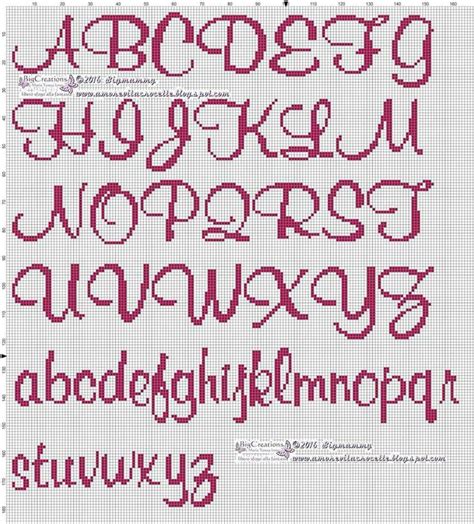 10 20 30 40 50 60 70 80 90 100 110 120 130 140 150 160
A B C D E F G
BigCreations ©2016 Bigmammy
www.amorevitacrocette.blogspot.com
H I J K L M
N O P Q R S T
U V W X Y Z
abcdefghijklmnopqr
BigCreations ©2016 Bigmammy
www.amorevitacrocette.blogspot.com
stuvwxyz